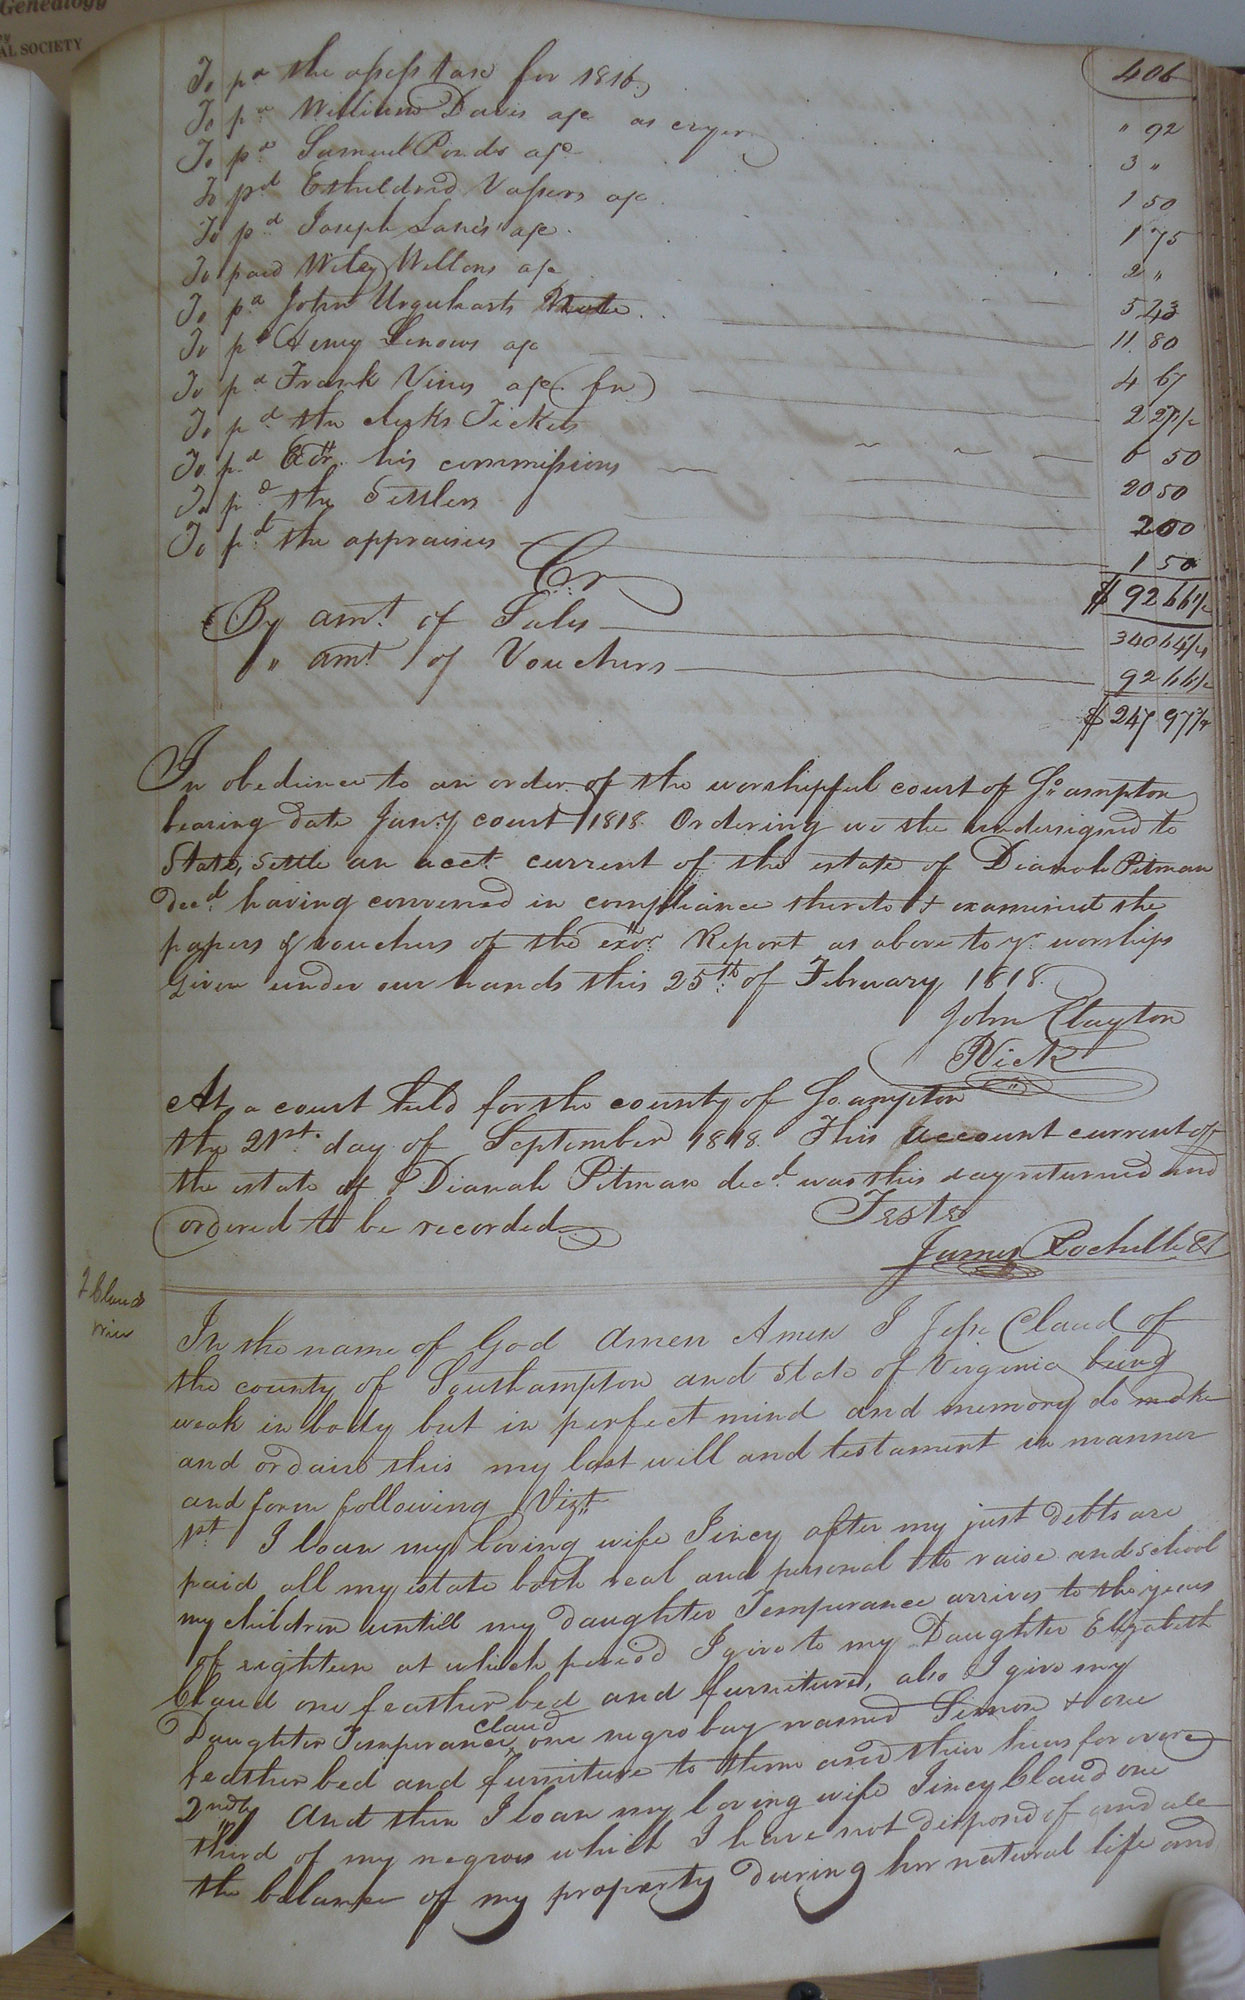 Genealogy
AL SOCIETY
406
To pd the assess taxe for 1816 " 92
To pd William Davis a/c as cryer 3 "
To pd Samuel Ponds a/c 1 50
To pd Etheldred Vassers a/c 1 75
To pd Joseph Lanes a/c 2 "
To paid Wiley Wellons a/c 5 23
To pd John Urquharts Note 11 80
To pd Henry Lenows a/c 4 67
To pd Frank Vines a/c (fn) 2 27 1/2
To pd the clerks Tickets 6 50
To pd Exor. his commissions 20 50
To pd the Settlers 2 00
To pd the appraisers 1 50
$ 92 66 1/2
Cr
By amt. of Sales 340 64 1/4
" amt of Vouchers 92 66 1/2
$ 247 97 3/4
In obedience to an order of the worshipful court of So.ampton
bearing date Jany court 1818. Ordering we the undersigned to
State, Settle an acct. current of the estate of Dianah Pitman
decd. having convened in compliance thereto & examined the
papers & vouchers of the exor. Report as above to yr. worships
Given under our hands this 25th of February 1818.
John Clayton
Rick
At a court held for the county of So.ampton
the 21st. day of September 1818. This account current of
the estate of Dianah Pitman decd. was this day returned and
ordered to be recorded Teste
James Rochelle Cl
J Clauds
Will
In the name of God Amen Amen I Jesse Claud of
the county of Southampton and State of Virginia being
weak in body but in perfect mind and memory do make
and ordain this my last will and testament in manner
and form following Vizt
1st. I loan my loving wife Jincy after my just debts are
paid all my estate both real and personal to raise and school
my children untill my daughter Temperance arrives to the years
of eighteen at which period I give to my Daughter Elizabeth
Claud one feather bed and furniture, also I give my
Daughter Temperance claud one negro boy named Simon & one
feather bed and furniture to them and their heirs for evere
2ndly And then I loan my loving wife Jincy Claud one
third of my negroes which I have not disposed of and all
the balance of my property during her natural life and